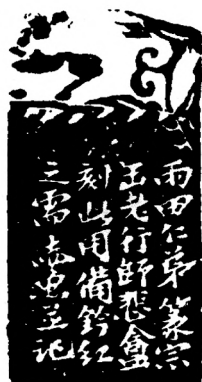 雨田仁弟篆宗
玉老行師悲盦
刻此用備鈐红
之需並记